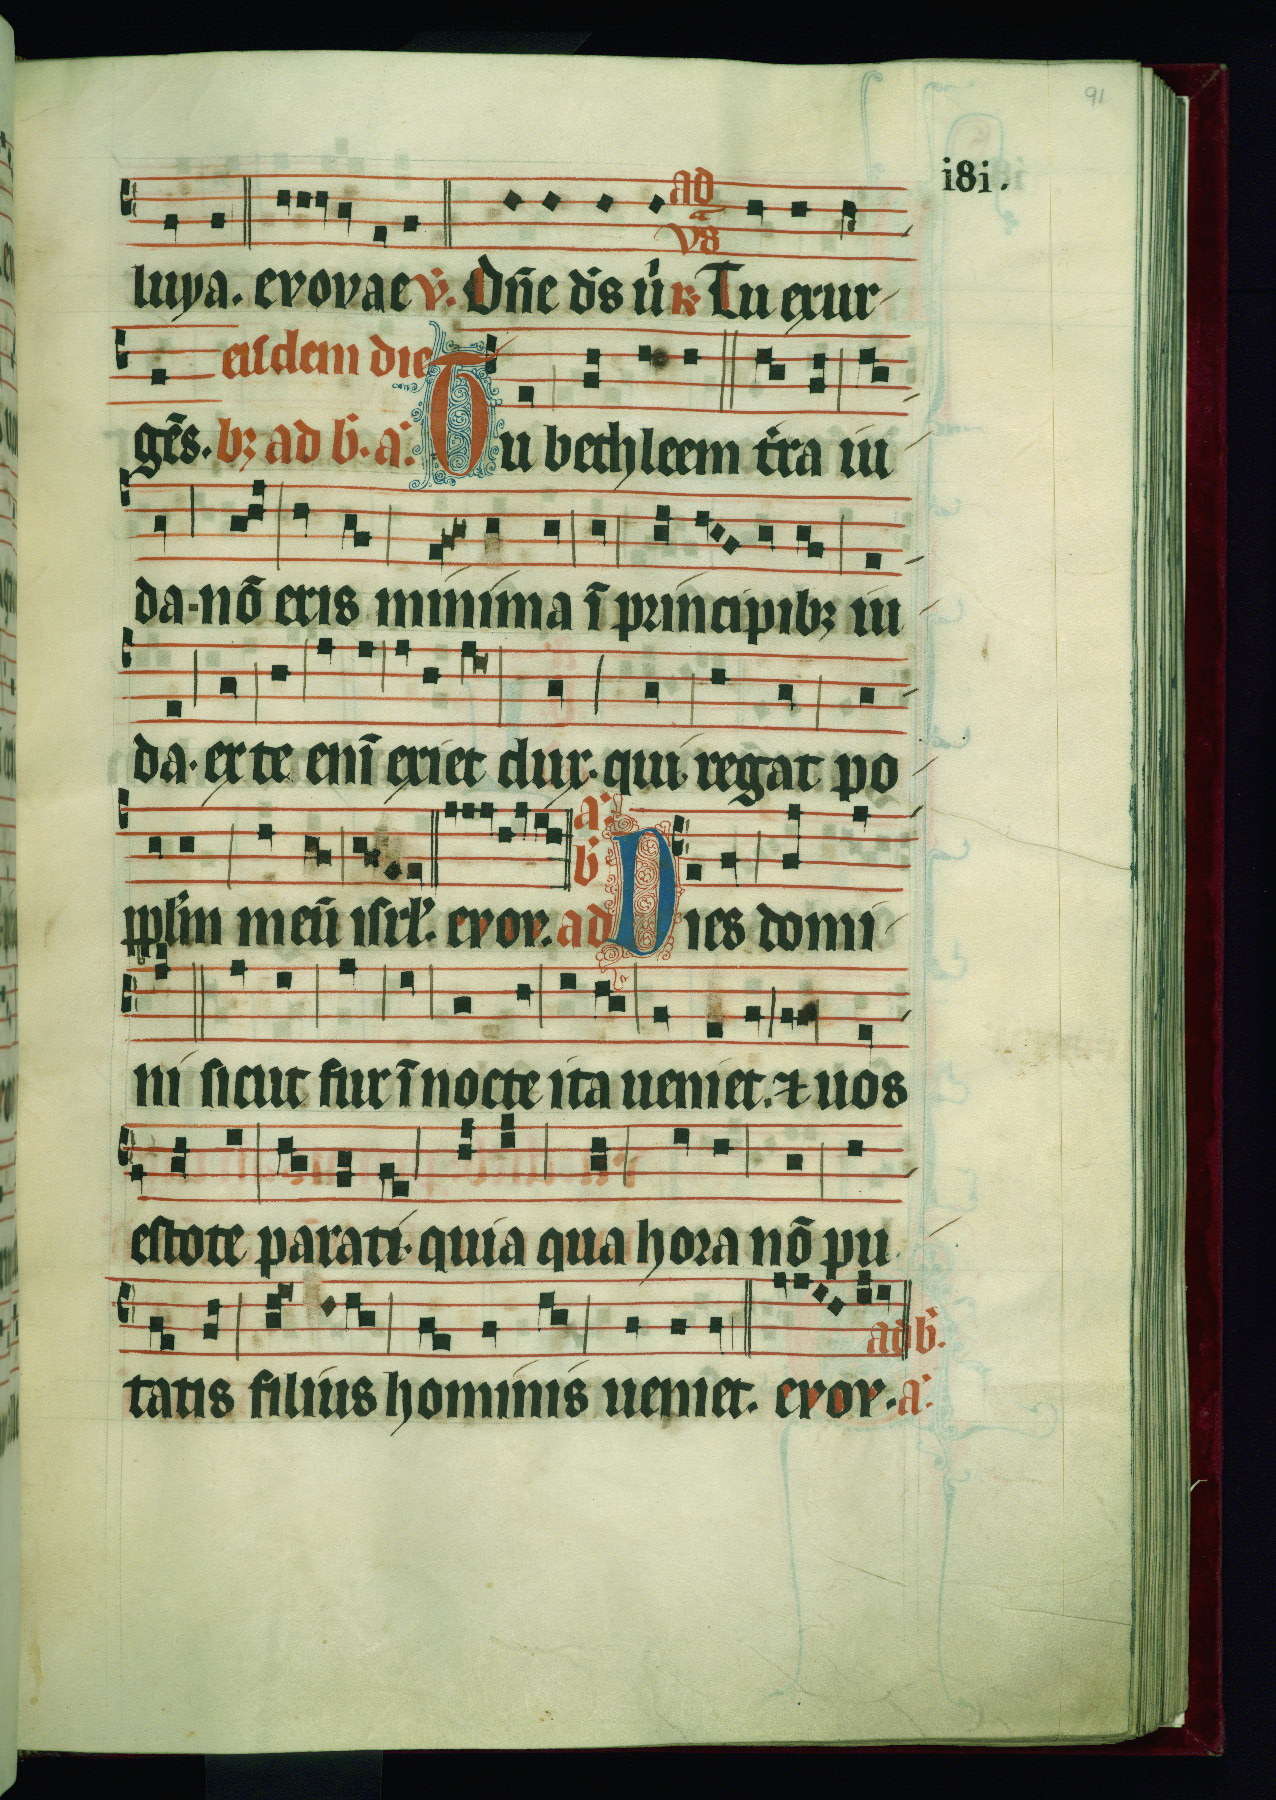 91
i8i.
ad
vs
luya. evovae v. Dn̄e ds̄ ur̄ R Tu exur
eisdem die
gēs. bꝫ ad b. a. Tu bethleem tr̄a iu
da. nō eris minima ī principibꝫ iu
da. ex te enī exiet dux. qui regat po
a.
b
pplm̄ meū isrl̄. evov. ad Dies domi
ni sicut fur ī nocte ita ueniet. ⁊ uos
estote parati. quia qua hora nō pu
ad b.
tatis filius hominis ueniet. evov. a.